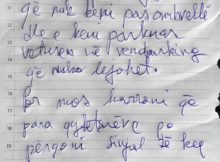 që nuk kemi pasqmbrellë
dhe e kemi parkuar
veturen në vendparking
që nuk lejohet.
Por mos harroni që
para qytetarëve po
përgoni sinjal të keq